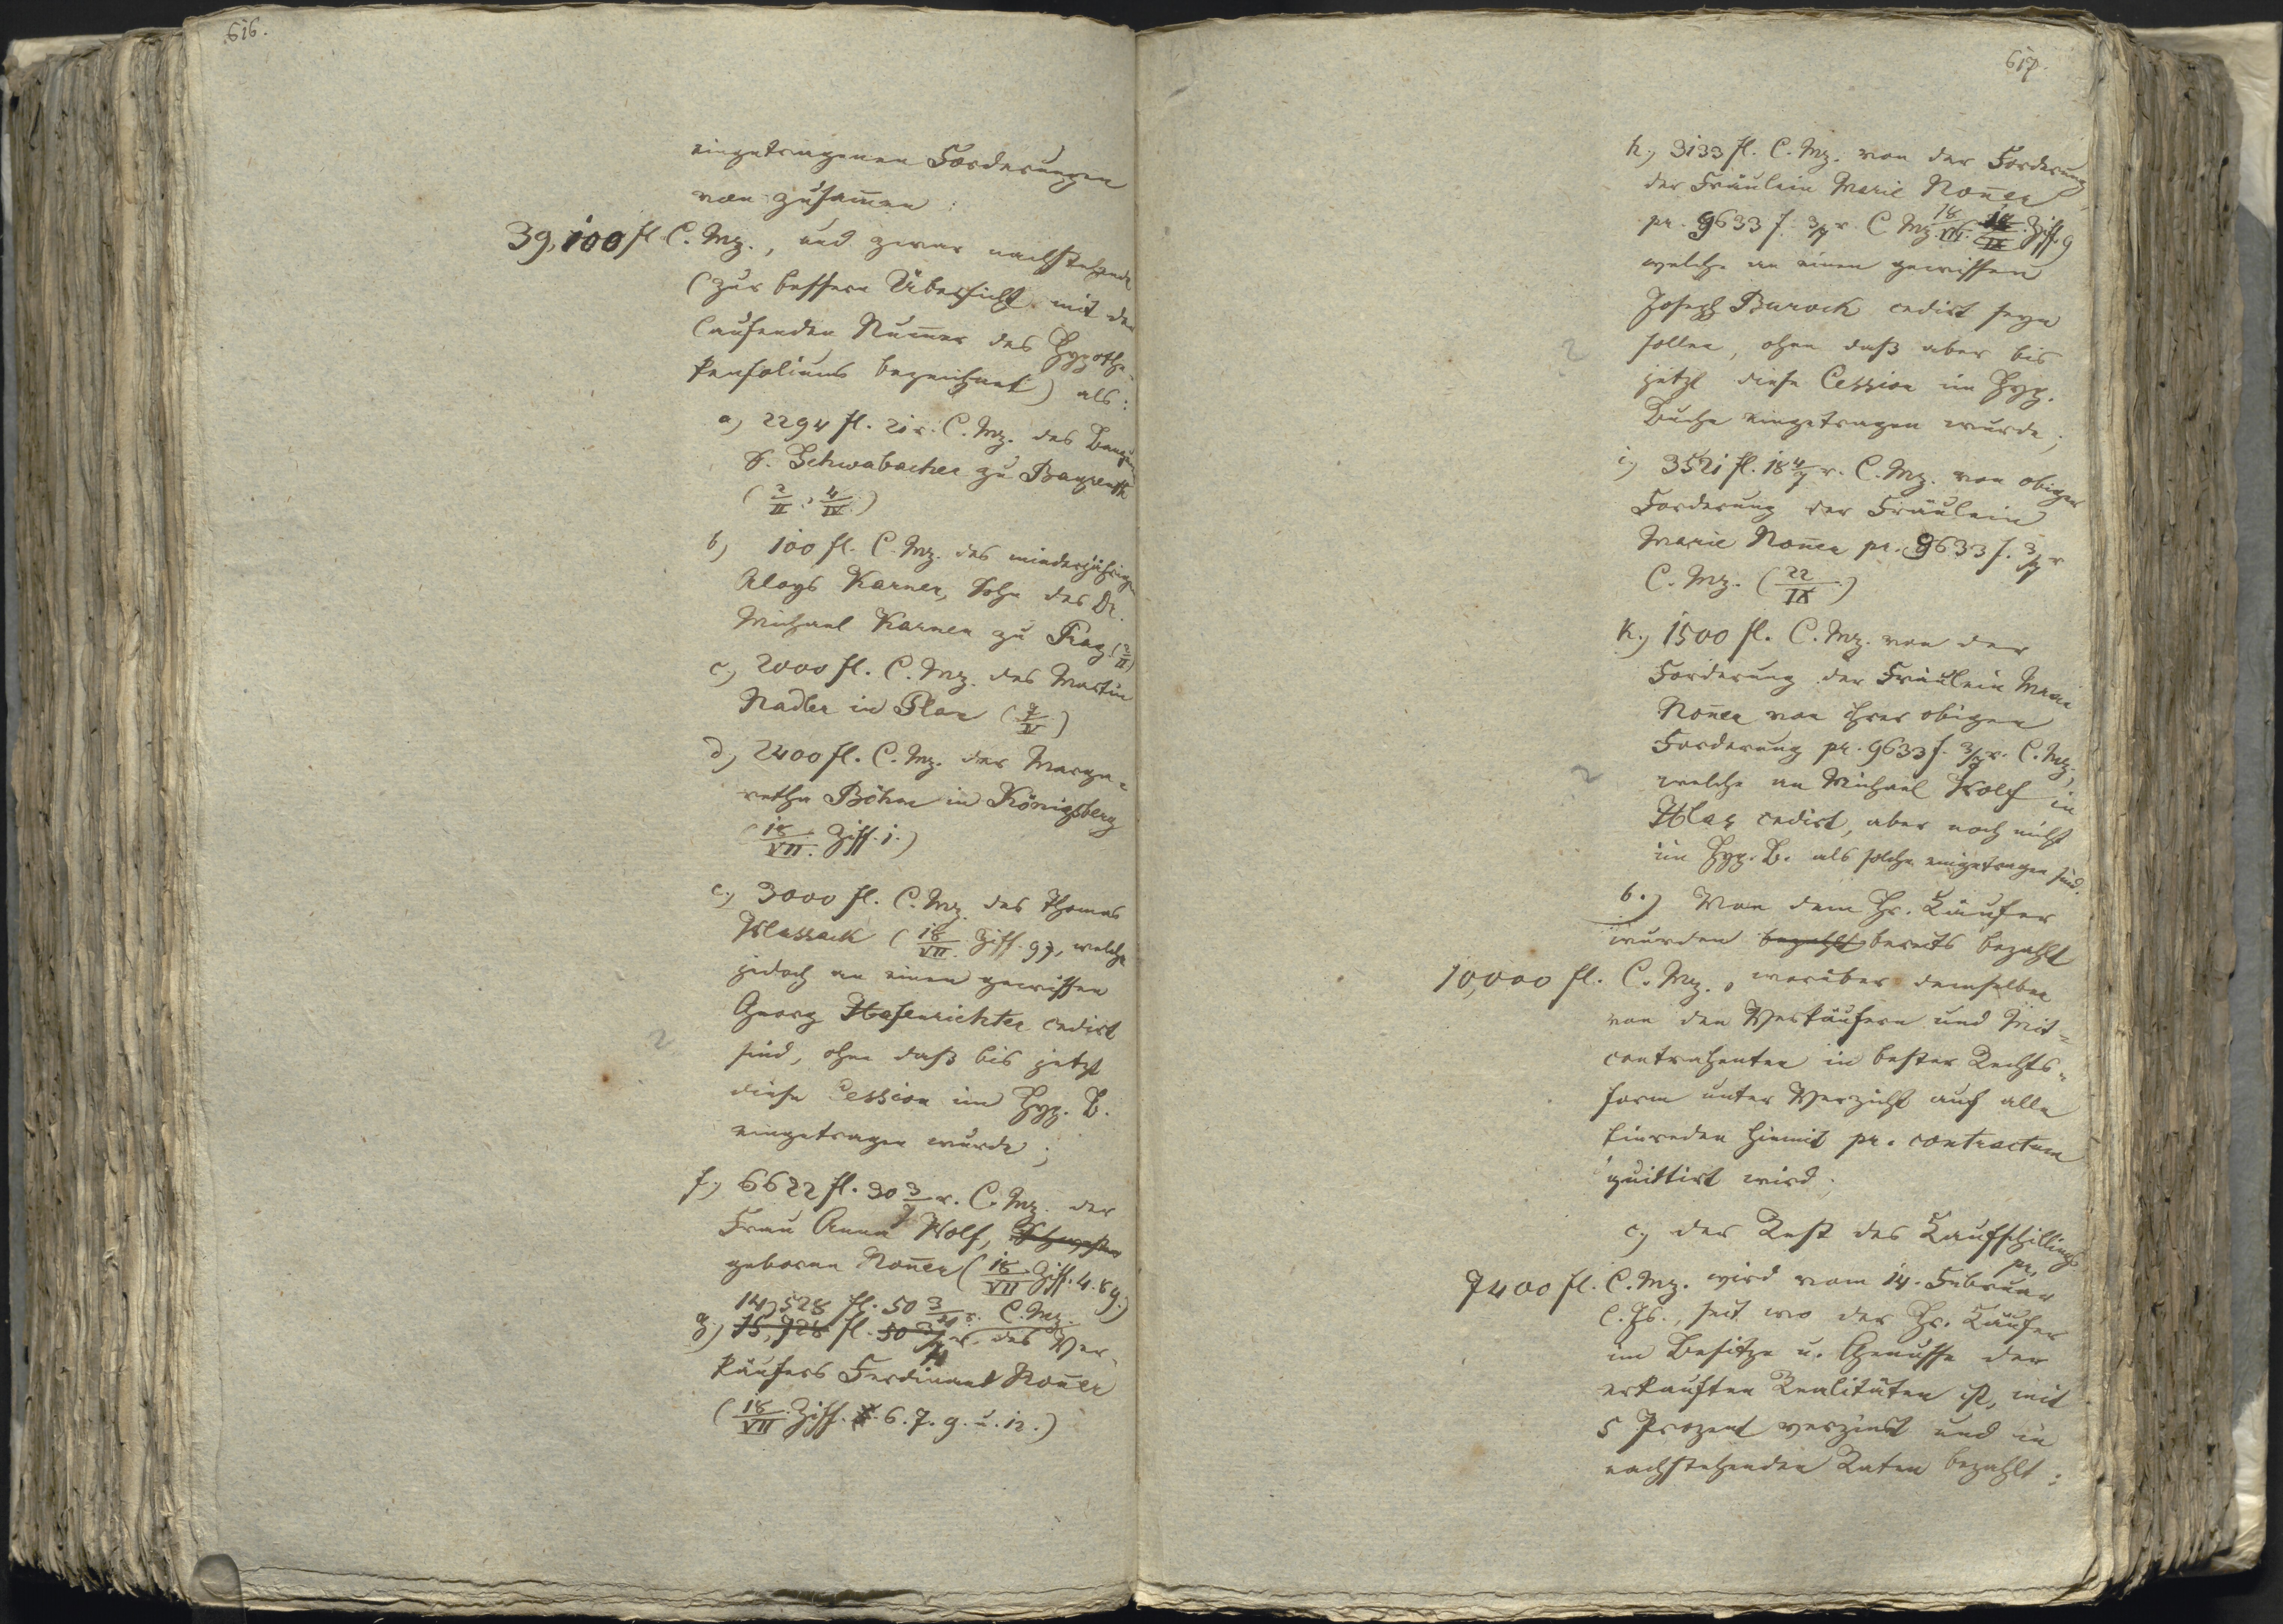 616.
eingetragenen Forderungen
von zusam̄en :
39,100 fl. C. Mz., und zwar nachstehende
(zur bessern Übersicht mit der
laufenden Num̄er des Hypothe-
kenfoliums bezeichnet) als:
a) 2294 fl. 21 x. C. Mz. des Banquier
S. Schwabacher zu Bayreuth
(2/II : 4/IV.)
b) 100 fl. C. Mz. des minderjährigen
Aloys Karner, Sohn des Dr.
Michael Karner zu Prag (2/II)
c) 2000 fl. C. Mz. des Martin
Nadler in Plan (7/V)
d) 2400 fl. C. Mz. der Marga-
retha Böhm in Königsberg
(18/VII. Ziff. 1.)
e) 3000 fl. C. Mz. des Thomas
(18/VII. Ziff. 9), welche
jedoch an einen gewissen
Georg Hasenrichter cedirt
sind, ohne daß bis jetzt
diese Cession im Hyp. B.
eingetragen wurde;
f) 6622 fl. 30 3/7 x. C. Mz. der
Frau Anna Wolf, Schwester
geborne Noñer (18/VII Ziff. 4. 8 9.)
14,528 fl. 50 3/7 x. C. Mz.
g) 15,728 fl. 50 3/7 x. des Ver-
käufers Ferdinand Noñer
(18/VII. Ziff. 6. 7. 9. u. 12.)
617.
h.) 3133 fl. C. Mz. von der Forderung
der Fräulein Marie Noñer
pr. 9633 f. 3/7 x. C. Mz. 18/VII. 18/IX. Ziff. 9
welche an einen gewissen
Joseph Burock cedirt seyn
sollen, ohne daß aber bis
jetzt diese Cession im Hyp.
Buche eingetragen wurde;
i) 3521 fl. 18 4/7 x. C. Mz. von obiger
Forderung der Fräulein
Marie Noñer pr. 9633 f. 3/7 x
C. Mz. (22/IX.)
k.) 1500 fl. C. Mz. von der
Forderung der Fräulein Marie
Noñer von ihrer obigen
Forderung pr. 9633 f. 3/7 x. C. Mz.,
welche an Michael Wolf in
cedirt, aber noch nicht
im Hyp. B. als solche eingetragen sind.
b.) Von dem Hr. Käufer
wurden bezahlt bereits bezahlt
10,000 fl. C. Mz., worüber demselben
von den Verkäufern und Mit-
contrahenten in bester Rechts-
form unter Verzicht auf alle
Einreden hiemit pr. contractum
quittirt wird.
c) der Rest des Kaufschillings
pr.
7400 fl. C. Mz. wird vom 14. Februar
l. Js., seit wo der Hr. Käufer
im Besitze u. Genusse der
erkauften Realitäten ist, mit
5 Prozent verzinst und in
nachstehenden Raten bezahlt: